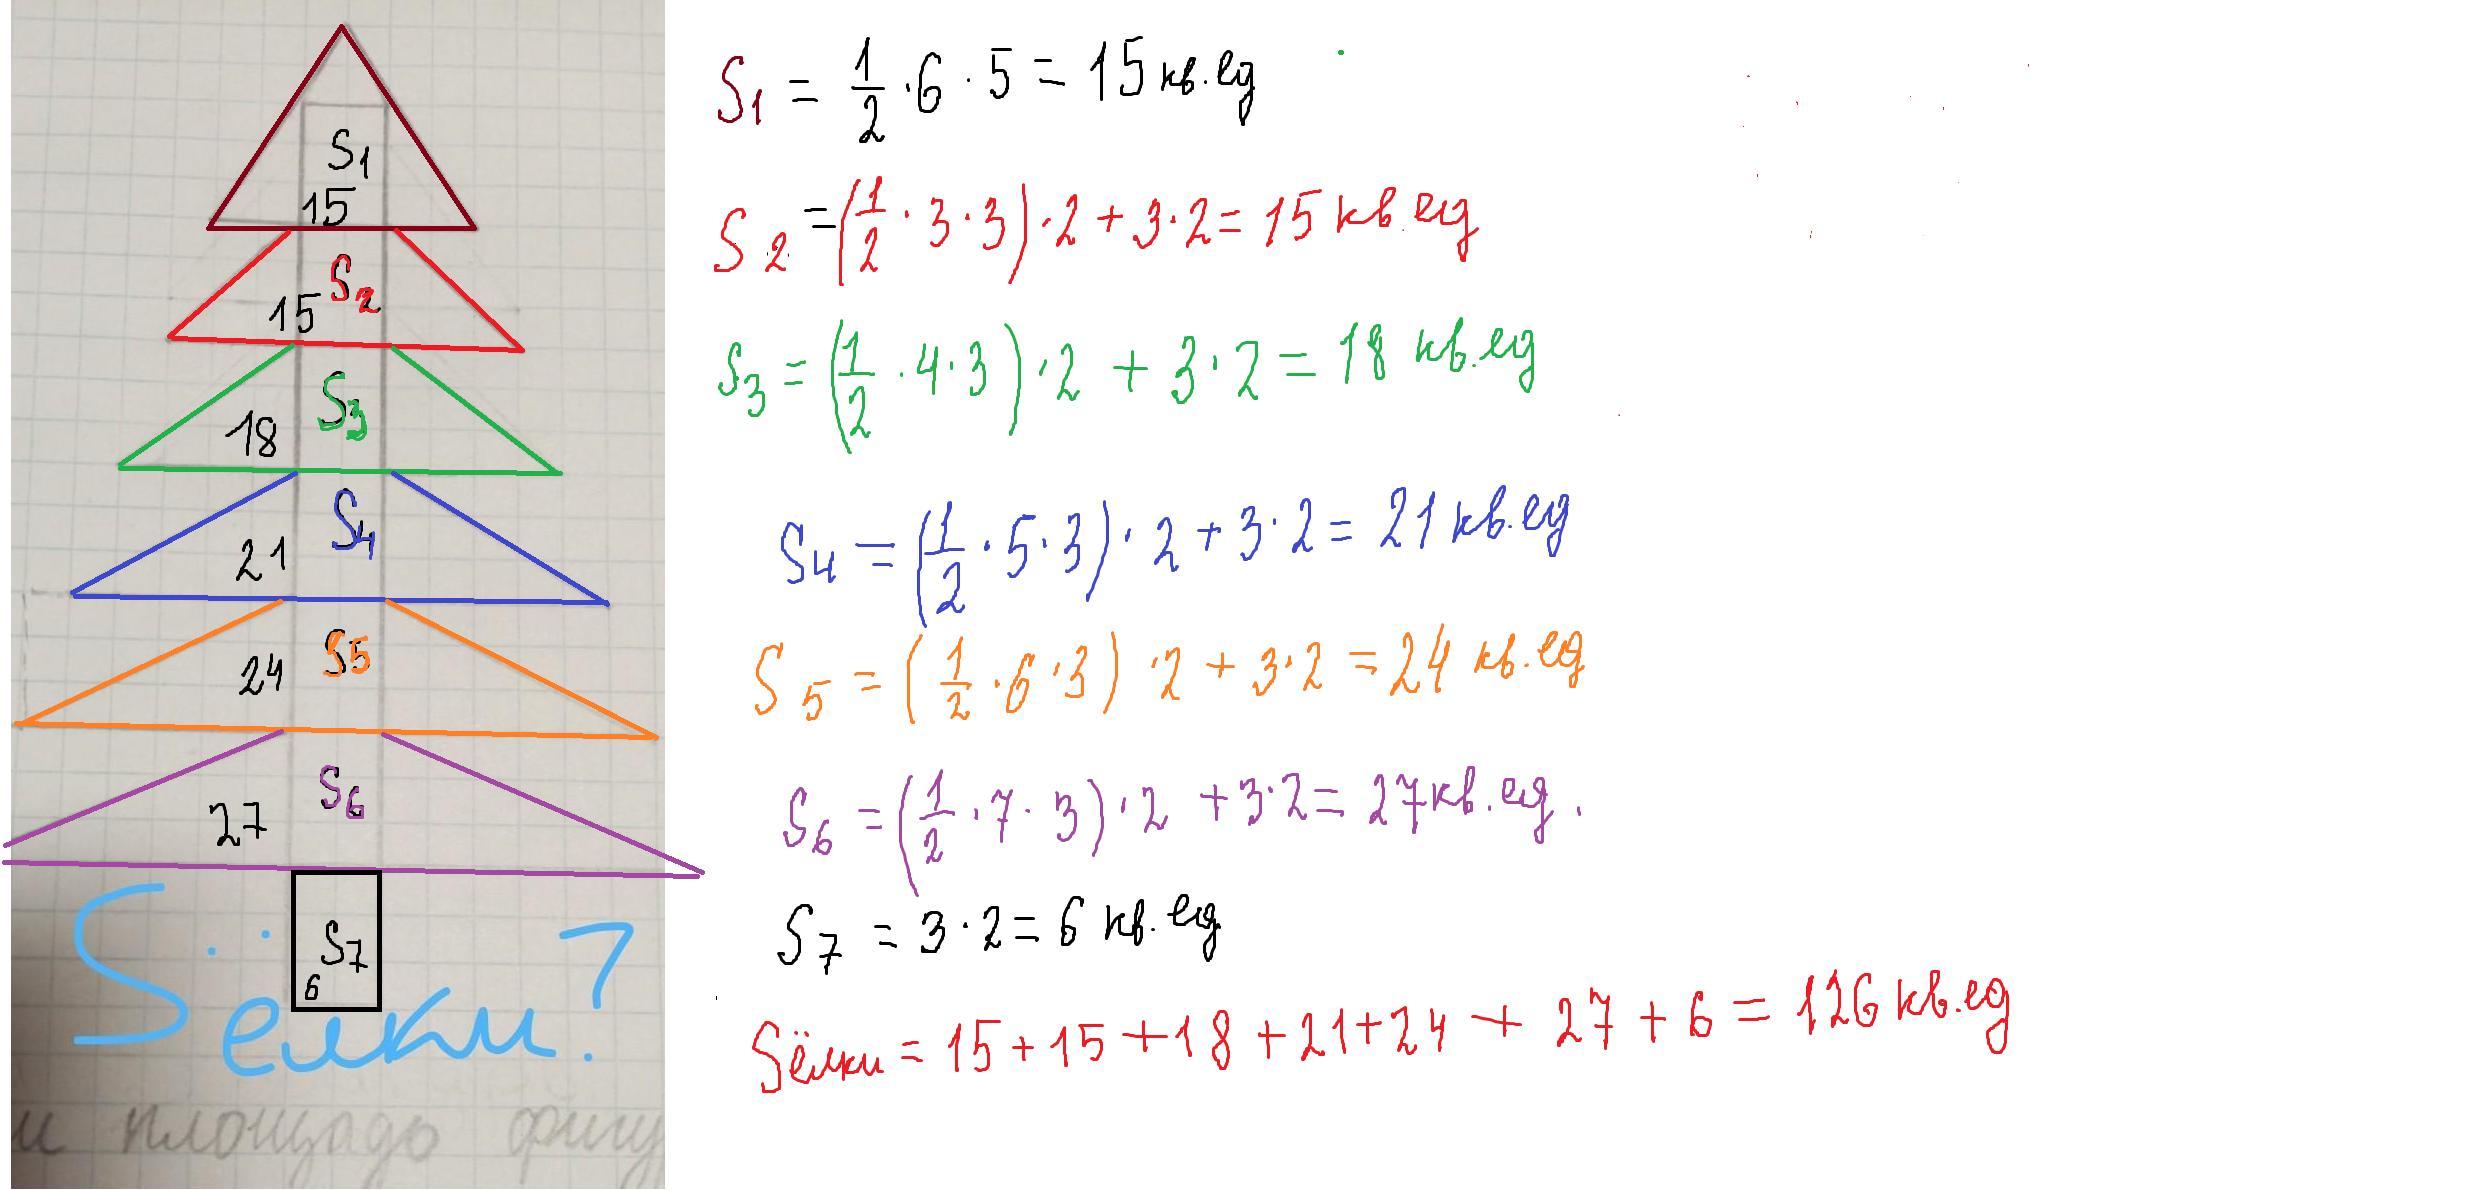 S1
15
S2
15
S3
18
S4
21
S5
24
S6
27
S7
6
Sёлки?
и площадь фигу
S1 = 1/2 · 6 · 5 = 15 кв.ед
S2 = (1/2 · 3 · 3) · 2 + 3 · 2 = 15 кв.ед
S3 = (1/2 · 4 · 3) · 2 + 3 · 2 = 18 кв.ед
S4 = (1/2 · 5 · 3) · 2 + 3 · 2 = 21 кв.ед
S5 = (1/2 · 6 · 3) · 2 + 3 · 2 = 24 кв.ед
S6 = (1/2 · 7 · 3) · 2 + 3 · 2 = 27 кв.ед.
S7 = 3 · 2 = 6 кв.ед
Sёлки = 15 + 15 + 18 + 21 + 24 + 27 + 6 = 126 кв.ед